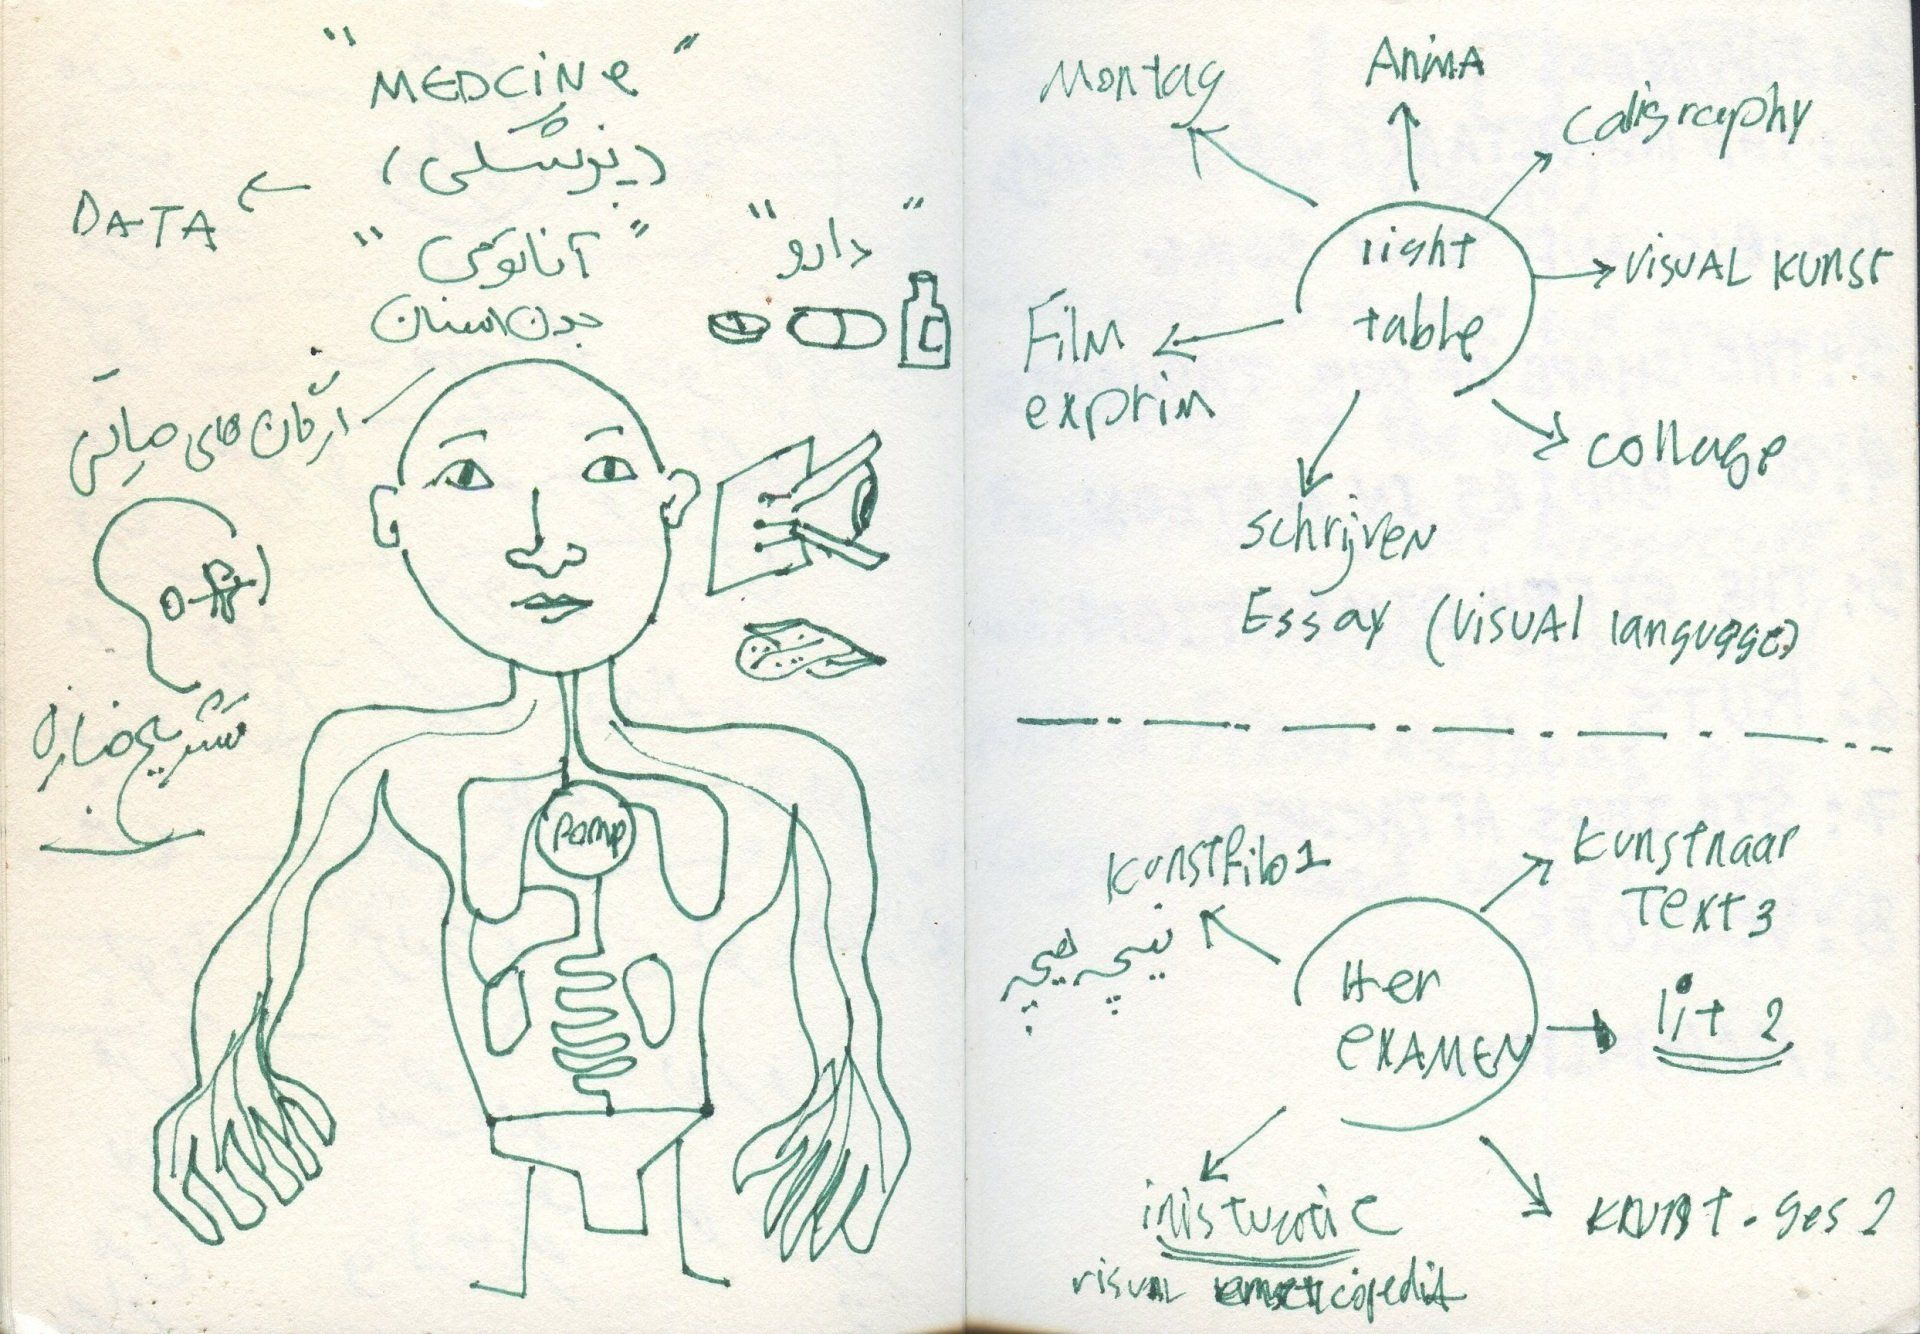 "MEDCiNe"
(پزشکی)
DATA
"آناتومی"
بدن انسان
"دارو"
C
ارگان های حیاتی
تشریح جنازه
Pomp
Montag
AniMA
caligraphy
light
table
VISUAL KUNST
Film
exprim
collage
schrijven
Essay (VISUAl language)
KUNSTFilo 1
نیچه
KUNSTnaar
Text 3
Her
EXAMEN
lit 2
KUNST - ges 2
visual